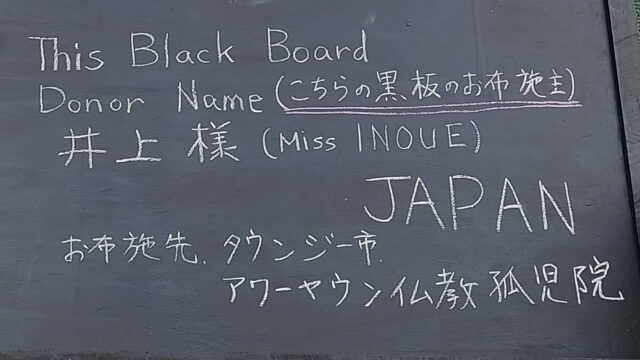 This Black Board
Donor Name (こちらの黒板のお布施主)
井上様 (Miss INOUE)
JAPAN
お布施先. タウンジー市.
アワーヤウン仏教孤児院